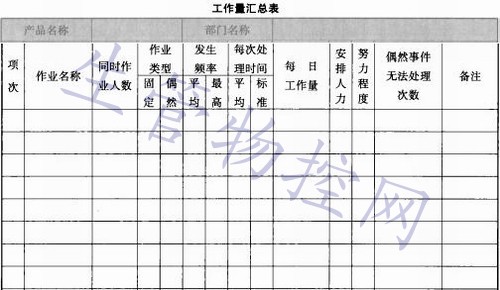 工作量汇总表
产品名称 部门名称
项次 作业名称 同时作业人数 作业类型 发生频率 每次处理时间 每日工作量 安排人力 努力程度 偶然事件无法处理次数 备注
固定 偶然 平均 最高 平均 标准
生管物控网